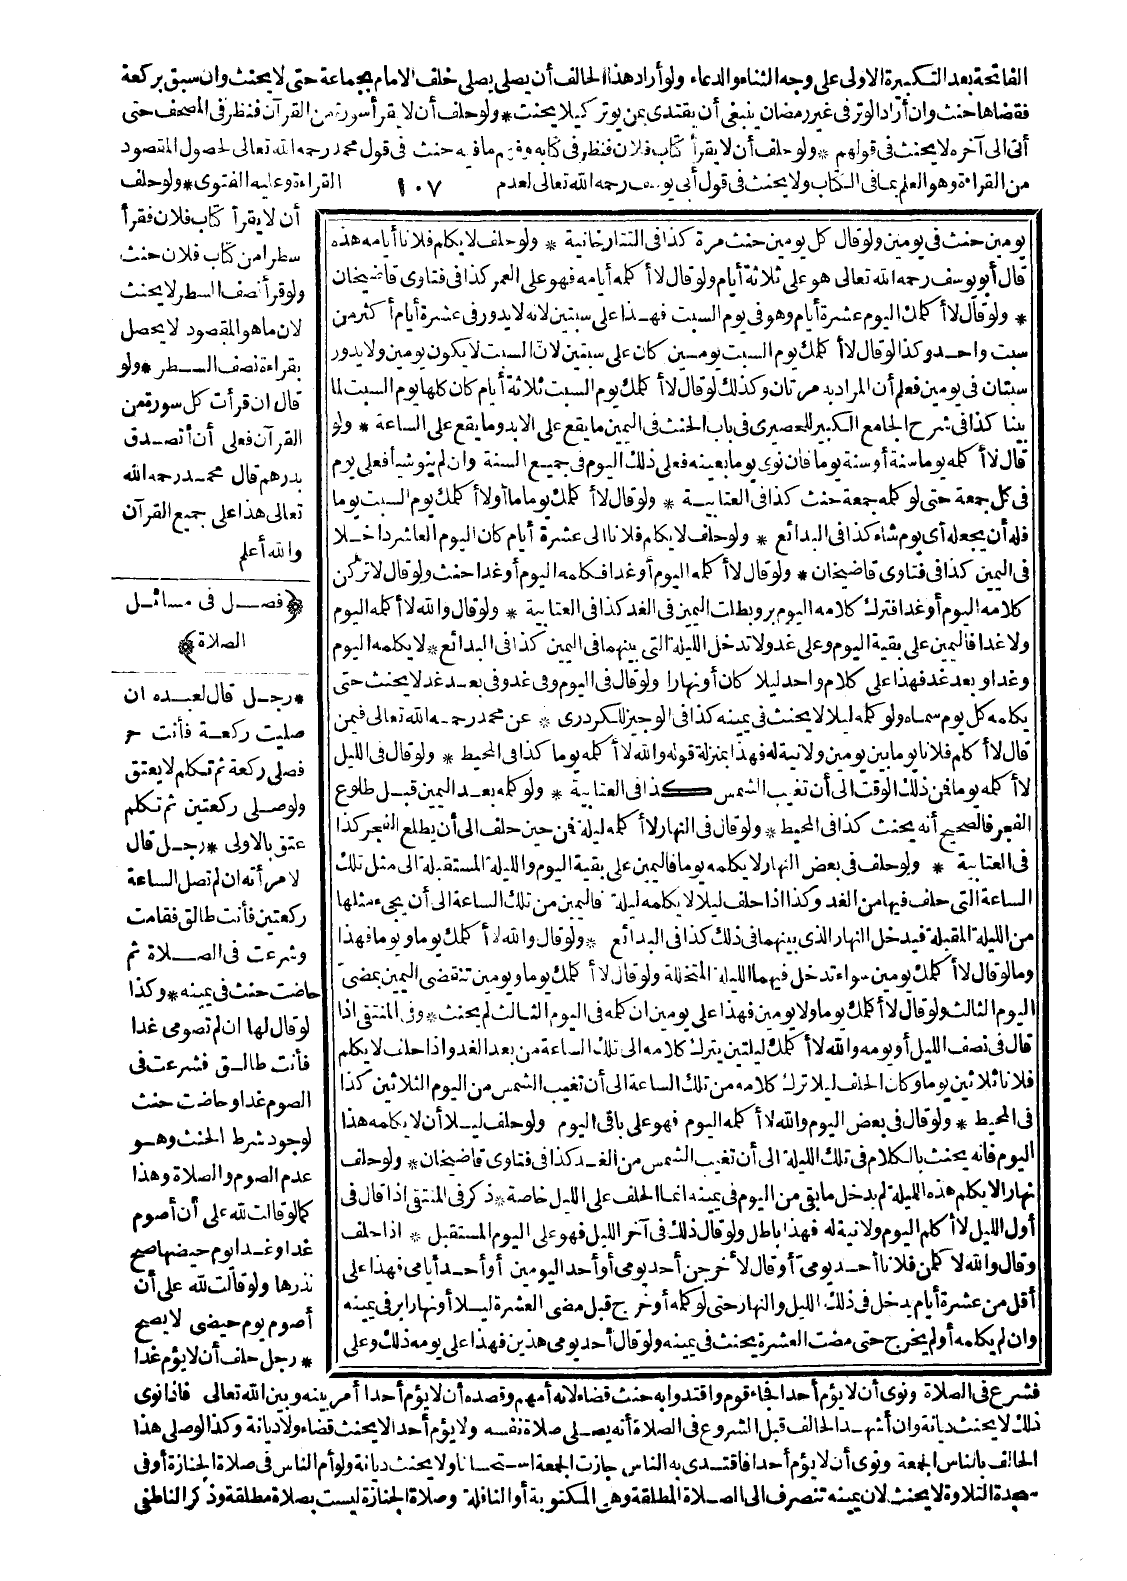 الفاتحة بعد التكبيرة الاولى على وجه الثناء والدعاء ولو أراد هذا الحالف أن يصلى يصلى خلف الامام بجماعة حتى لا يحنث وان سبق بركعة
فقضاها حنث وان أراد الوتر فى غير رمضان ينبغى أن يقتدى بمن يوتر كيلا يحنث * ولو حلف أن لا يقرأ سورة من القرآن فنظر فى المصحف حتى
أتى الى آخره لا يحنث فى قولهم * ولو حلف أن لا يقرأ كتاب فلان فنظر فى كتابه وفهم ما فيه حنث فى قول محمد رحمه الله تعالى لحصول المقصود
من القراءة وهو العلم بما فى الكتاب ولا يحنث فى قول أبى يوسف رحمه الله تعالى لعدم ١٠٧ القراءة وعليه الفتوى * ولو حلف
أن لا يقرأ كتاب فلان فقرأ
سطرا من كتاب فلان حنث
ولو قرأ نصف السطر لا يحنث
لان ما هو المقصود لا يحصل
بقراءة نصف السطر * ولو
قال ان قرأت كل سورة من
القرآن فعلى أن أتصدق
بدرهم قال محمد رحمه الله
تعالى هذا على جميع القرآن
والله أعلم
﴿فصل فى مسائل
الصلاة﴾
* رجل قال لعبده ان
صليت ركعة فأنت حر
فصلى ركعة ثم تكلم لا يعتق
ولو صلى ركعتين ثم تكلم
عتق بالاولى * رجل قال
لامرأته ان لم تصل الساعة
ركعتين فأنت طالق فقامت
وشرعت فى الصلاة ثم
حاضت حنث فى يمينه * وكذا
لو قال لها ان لم تصومى غدا
فأنت طالق فشرعت فى
الصوم غدا وحاضت حنث
لوجود شرط الحنث وهو
عدم الصوم والصلاة وهذا
كما لو قالت لله على أن أصوم
غدا وغدا يوم حيضها صح
نذرها ولو قالت لله على أن
أصوم يوم حيضى لا يصح
* رجل حلف أن لا يؤم غدا
يومين حنث فى يومين ولو قال كل يومين حنث مرة كذا فى التتارخانية * ولو حلف لا يكلم فلانا أيامه هذه
قال أبو يوسف رحمه الله تعالى هو على ثلاثة أيام ولو قال لا أكلمه أيامه فهو على العمر كذا فى فتاوى قاضيخان
* ولو قال لا أكلمك اليوم عشرة أيام وهو فى يوم السبت فهذا على سبتين لانه لا يدور فى عشرة أيام أكثر من
سبت واحد وكذا لو قال لا أكلمك يوم السبت يومين كان على سبتين لان السبت لا يكون يومين ولا يدور
سبتان فى يومين فعلم أن المراد به مرتان وكذلك لو قال لا أكلمك يوم السبت ثلاثة أيام كان كلها يوم السبت لما
بينا كذا فى شرح الجامع الكبير للحصيرى فى باب الحنث فى اليمين ما يقع على الابد وما يقع على الساعة * ولو
قال لا أكلمه يوما سنة أو سنة يوما فان نوى يوما بعينه فعلى ذلك اليوم فى جميع السنة وان لم ينو شيأ فعلى يوم
فى كل جمعة حتى لو كلمه جمعة حنث كذا فى العتابية * ولو قال لا أكلمك يوما ما أو لا أكلمك يوم السبت يوما
فله أن يجعله أى يوم شاء كذا فى البدائع * ولو حلف لا يكلم فلانا الى عشرة أيام كان اليوم العاشر داخلا
فى اليمين كذا فى فتاوى قاضيخان * ولو قال لا أكلمه اليوم أو غدا فكلمه اليوم أو غدا حنث ولو قال لاتركن
كلامه اليوم أو غدا فترك كلامه اليوم بر وبطلت اليمين فى الغد كذا فى العتابية * ولو قال والله لا أكلمه اليوم
ولا غدا فاليمين على بقية اليوم وعلى غد ولا تدخل الليلة التى بينهما فى اليمين كذا فى البدائع * لا يكلمه اليوم
وغدا وبعد غد فهذا على كلام واحد ليلا كان أو نهارا ولو قال فى اليوم وفى غد وفى بعد غد لا يحنث حتى
يكلمه كل يوم سماه ولو كلمه ليلا لا يحنث فى يمينه كذا فى الوجيز للكردرى * عن محمد رحمه الله تعالى فيمن
قال لا أكلم فلانا يوما بين يومين ولا نية له فهذا بمنزلة قوله والله لا أكلمه يوما كذا فى المحيط * ولو قال فى الليل
لا أكلمه يوما فمن ذلك الوقت الى أن تغيب الشمس كذا فى العتابية * ولو كلمه بعد اليمين قبل طلوع
الفجر فالصحيح أنه يحنث كذا فى المحيط * ولو قال فى النهار لا أكلمه ليلة فمن حين حلف الى أن يطلع الفجر كذا
فى العتابية * ولو حلف فى بعض النهار لا يكلمه يوما فاليمين على بقية اليوم والليلة المستقبلة الى مثل تلك
الساعة التى حلف فيها من الغد وكذا اذا حلف ليلا لا يكلمه ليلة فاليمين من تلك الساعة الى أن يجىء مثلها
من الليلة المقبلة فيدخل النهار الذى بينهما فى ذلك كذا فى البدائع * ولو قال والله لا أكلمك يوما ويوما فهذا
وما لو قال لا أكلمك يومين سواء تدخل فيهما الليلة المتخللة ولو قال لا أكلمك يوما ويومين تنقضى اليمين بمضى
اليوم الثالث ولو قال لا أكلمك يوما ولا يومين فهذا على يومين ان كلمه فى اليوم الثالث لم يحنث * وفى المنتقى اذا
قال فى نصف الليل أو يومه والله لا أكلمك ليلتين يترك كلامه الى تلك الساعة من بعد الغد واذا حلف لا يكلم
فلانا ثلاثين يوما وكان الحلف ليلا ترك كلامه من تلك الساعة الى أن تغيب الشمس من اليوم الثلاثين كذا
فى المحيط * ولو قال فى بعض اليوم والله لا أكلمه اليوم فهو على باقى اليوم ولو حلف ليلا أن لا يكلمه هذا
اليوم فانه يحنث بالكلام فى تلك الليلة الى أن تغيب الشمس من الغد كذا فى فتاوى قاضيخان * ولو حلف
نهارا لا يكلم هذه الليلة لم يدخل ما بقى من اليوم فى يمينه انما الحلف على الليل خاصة * ذكر فى المنتقى اذا قال فى
أول الليل لا أكلم اليوم ولا نية له فهذا باطل ولو قال ذلك فى آخر الليل فهو على اليوم المستقبل * اذا حلف
وقال والله لا كلمن فلانا أحد يومى أو قال لاخرجن أحد يومى أو أحد اليومين أو أحد أيامى فهذا على
أقل من عشرة أيام يدخل فى ذلك الليل والنهار حتى لو كلمه أو خرج قبل مضى العشرة ليلا أو نهارا بر فى يمينه
وان لم يكلمه أو لم يخرج حتى مضت العشرة يحنث فى يمينه ولو قال أحد يومى هذين فهذا على يومه ذلك وعلى
فشرع فى الصلاة ونوى أن لا يؤم أحدا فجاء قوم واقتدوا به حنث قضاء لانه أمهم وقصده أن لا يؤم أحدا أمر بينه وبين الله تعالى فاذا نوى
ذلك لا يحنث ديانة وان أشهد الحالف قبل الشروع فى الصلاة أنه يصلى صلاة نفسه ولا يؤم أحدا لا يحنث قضاء ولا ديانة وكذا لو صلى هذا
الحالف بالناس الجمعة ونوى أن لا يؤم أحدا فاقتدى به الناس جازت الجمعة استحسانا ولا يحنث ديانة ولو أم الناس فى صلاة الجنازة أو فى
سجدة التلاوة لا يحنث لان يمينه تنصرف الى الصلاة المطلقة وهى المكتوبة أو النافلة وصلاة الجنازة ليست بصلاة مطلقة وذكر الناطفى